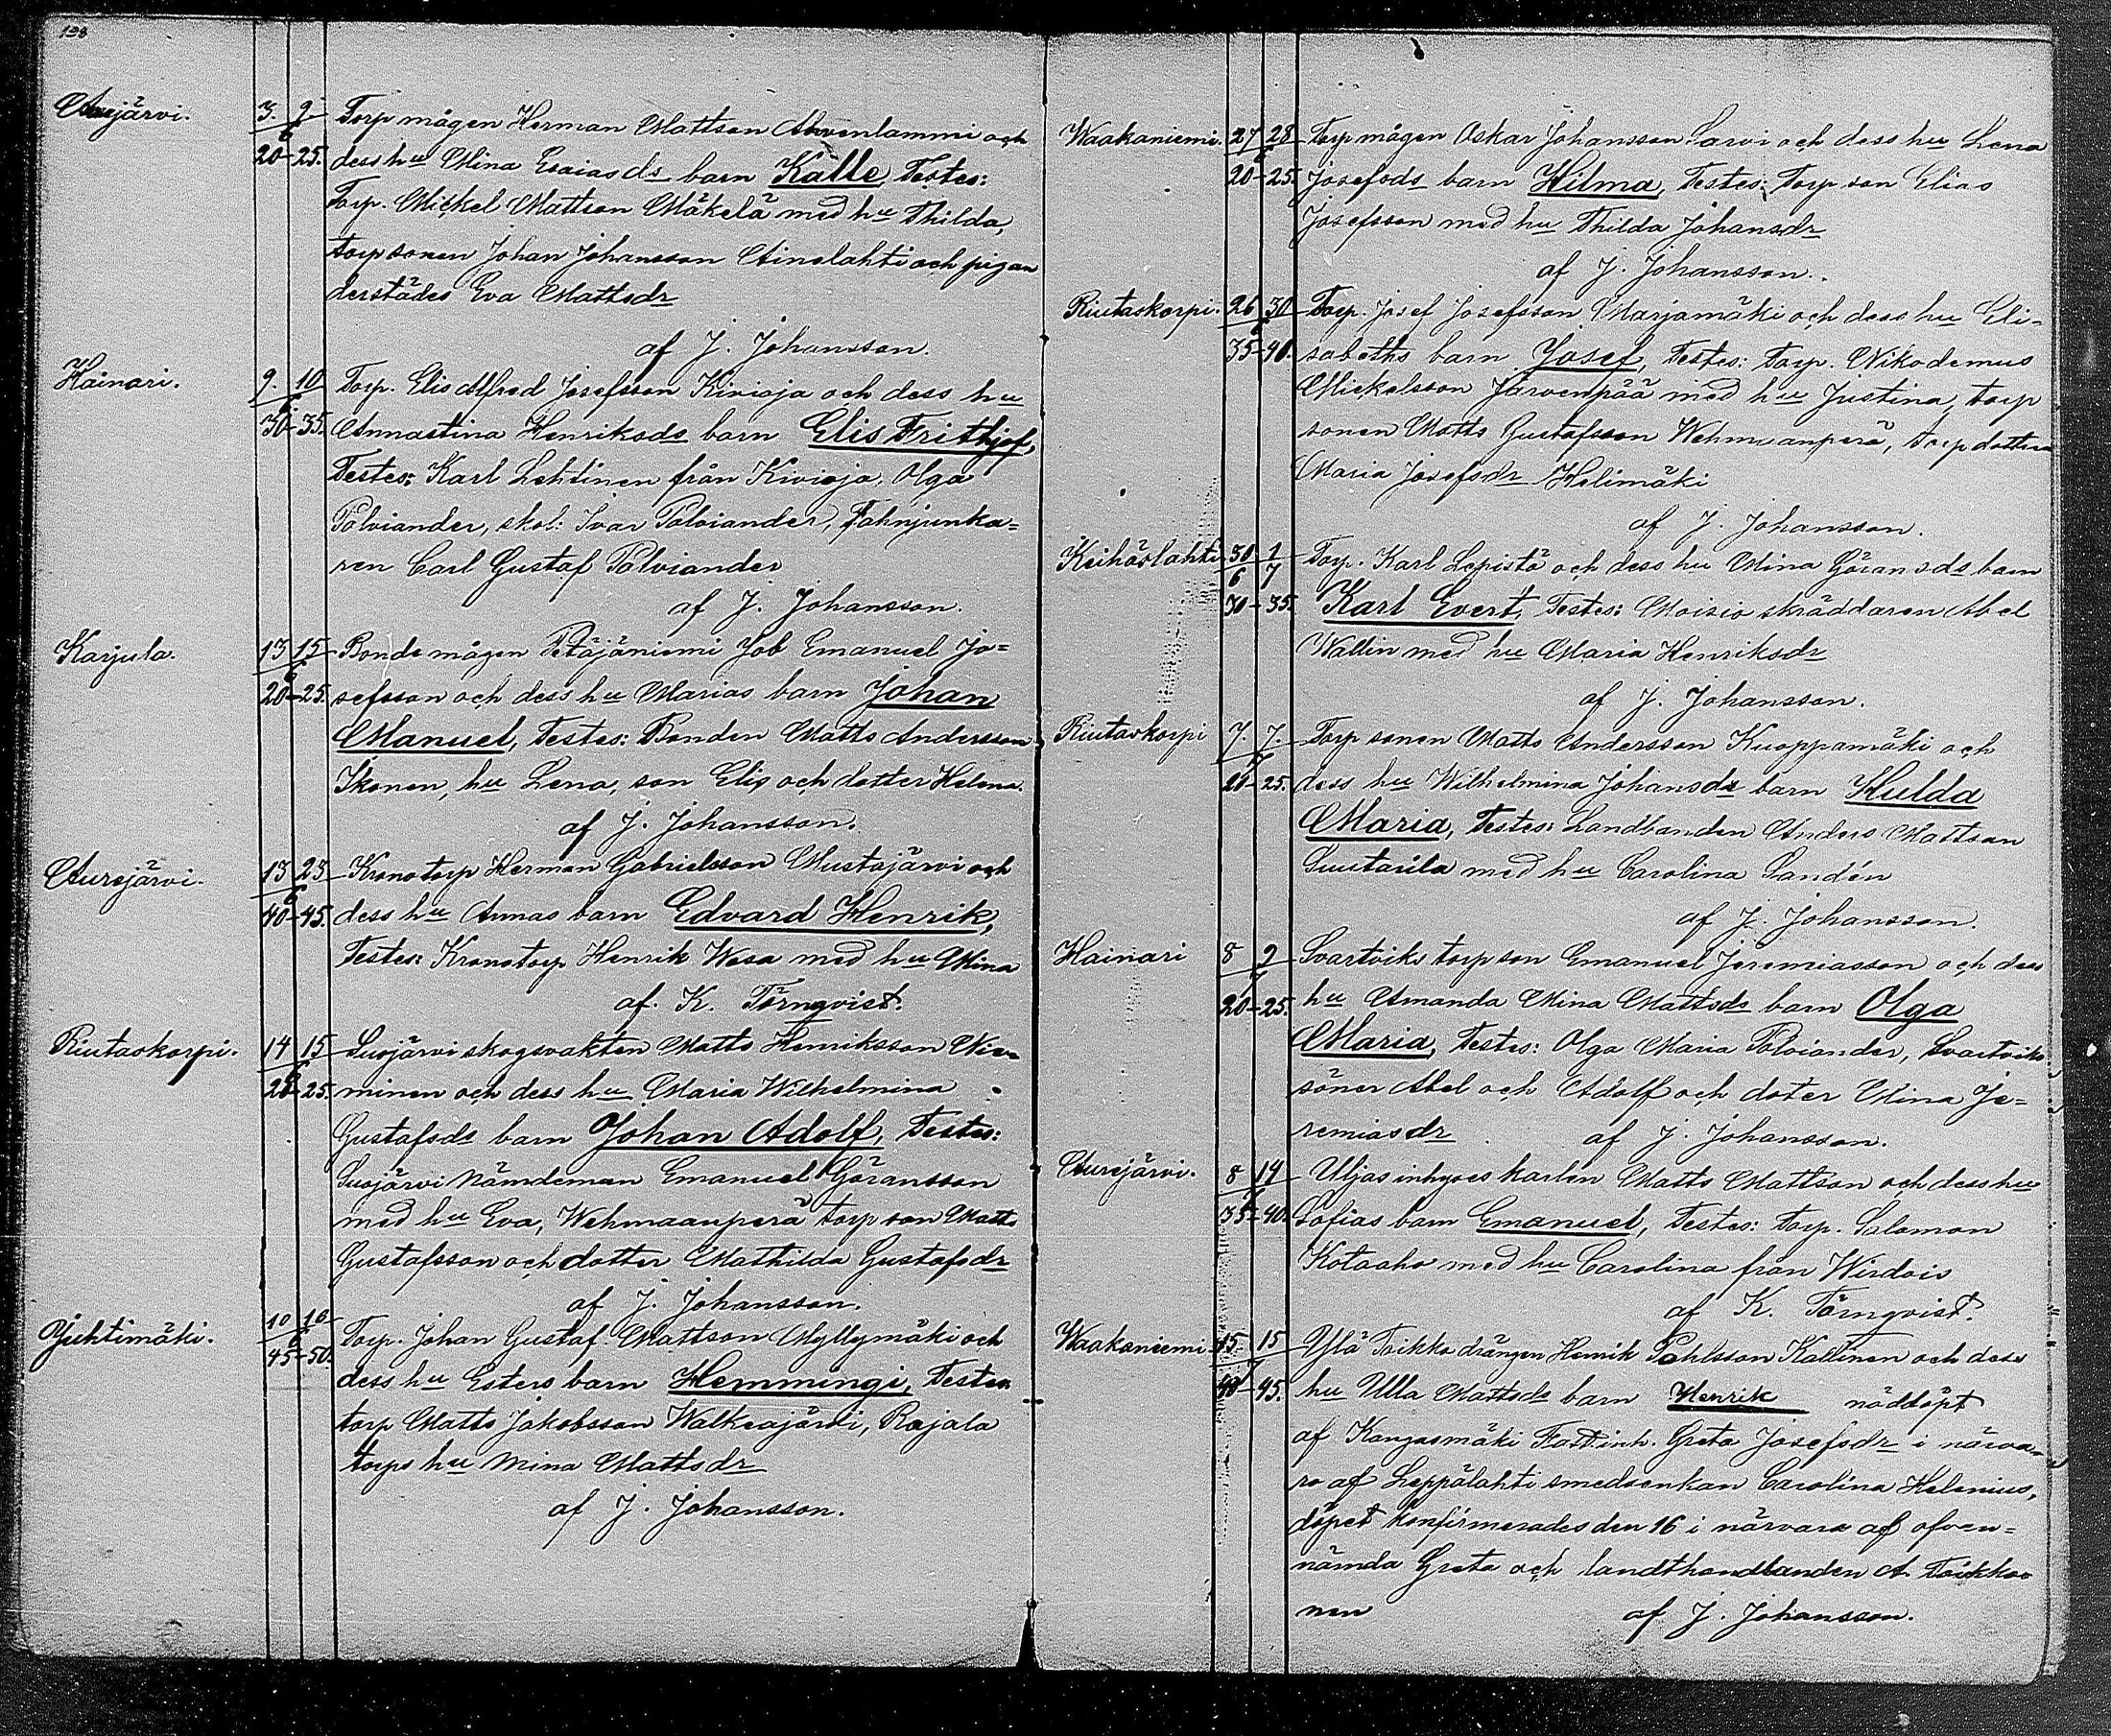 198
Aurejärvi. 3. 9. Torp mågen Herman Mattson Ahvenlammi och
6
20-25. dess hu Mina Esaiasds barn Kalle, Testes:
Torp. Mickel Mattson Mäkelä med hu Thilda,
torpsonen Johan Johansson Ainolahti och pigan
derstädes Eva Mattsdr
af J. Johansson.
Hainari. 9. 10 Torp. Elis Alfred Josefsson Kivioja och dess hu
6
30-35. Annastina Henriksds barn Elis Frithjof,
Testes: Karl Lehtinen från Kivioja, Olga
Polviander, skol: Ivar Polviander, Fahnjunka=
ren Carl Gustaf Polviander
af J. Johansson.
Karjula. 13 15 Bonde mågen Petäjäniemi Job Emanuel Jo=
6
20-25. sefsson och dess hu Marias barn Johan
Manuel, Testes: Bonden Matts Andersson
Ikonen, hu Lena, son Elis och dotter Helena.
af J. Johansson.
Aurejärvi. 13 23 Kronotorp Herman Gabrielsson Mustajärvi och
6
40-45. dess hu Annas barn Edvard Henrik,
Testes: Kronotorp Henrik Wasa med hu Mina
af. K. Törnqvist.
Riutaskorpi. 14 15 Luojärvi skogsvakten Matts Henriksson Nie-
6
20-25. minen och dess hu Maria Wilhelmina
Gustafsds barn Johan Adolf, Testes:
Luojärvi Nämdeman Emanuel Göransson
med hu Eva, Wehmaanperä torpson Matts
Gustafsson och dotter Mathilda Gustafsdr
af J. Johansson.
Juhtimäki. 10 10 Torp. Johan Gustaf Mattson Myllymäki och
6
45-50. dess hu Esters barn Hemmingi, Testes
torp Matts Jakobsson Walkeajärvi, Rajala
torps hu Mina Mattsdr
af J. Johansson.
Waakaniemi. 27 28 Torp mågen Oskar Johansson Sarvi och dess hu Lena
6
20-25. Josefsds barn Hilma, Testes: Torp son Elias
Josefsson med hu Thilda Johansdr
af J. Johansson.
Riutaskorpi. 26 30 Torp. Josef Josefsson Marjamäki och dess hu Eli=
6
35-40. sabeths barn Josef, Testes: Torp. Nikodemus
Mickelsson Järvenpää med hu Justina, torp
sonen Matts Gustafsson Wehmaanperä, torpdottern
Maria Josefsdr Helimäki
af J. Johansson.
Keihäslahti 30 1 Torp. Karl Lepistö och dess hu Mina Göransds barn
6 7
30-35. Karl Evert, Testes: Moisio skräddaren Abel
Wallin med hu Maria Henriksdr
af J. Johansson.
Riutaskorpi 7. 7. Torp sonen Matts Andersson Kuoppamäki och
7
20-25. dess hu Wilhelmina Johansds barn Hulda
Maria, Testes: Landbonden Anders Mattson
Suutarila med hu Carolina Sandén
af J. Johansson.
Hainari 8 9 Svartviks torpson Emanuel Jeremiasson och dess
7
20-25. hu Amanda Mina Mattsds barn Olga
Maria, Testes: Olga Maria Polviander, Svartviks
söner Abel och Adolf och doter Mina Je=
remiasdr af J. Johansson.
Aurejärvi. 8 14 Uljas inhyses karlen Matts Mattson och dess hu
7
35-40. Sofias barn Emanuel, Testes: torp. Salomon
Kotaaho med hu Carolina från Wirdois
af K. Törnqvist.
Waakaniemi 15 15 Ylä Toikko drängen Henrik Pahlsson Kallinen och dess
7
40-45. hu Ulla Mattsds barn Henrik nöddöpt
af Kangasmäki Fast.inh. Greta Josefsdr i närva=
ro af Leppälahti smedsenkan Carolina Helenius,
döpet konfirmerades den 16 i närvara af ofvan=
nämda Greta och landthandlanden A Toikko=
nen af J. Johansson.